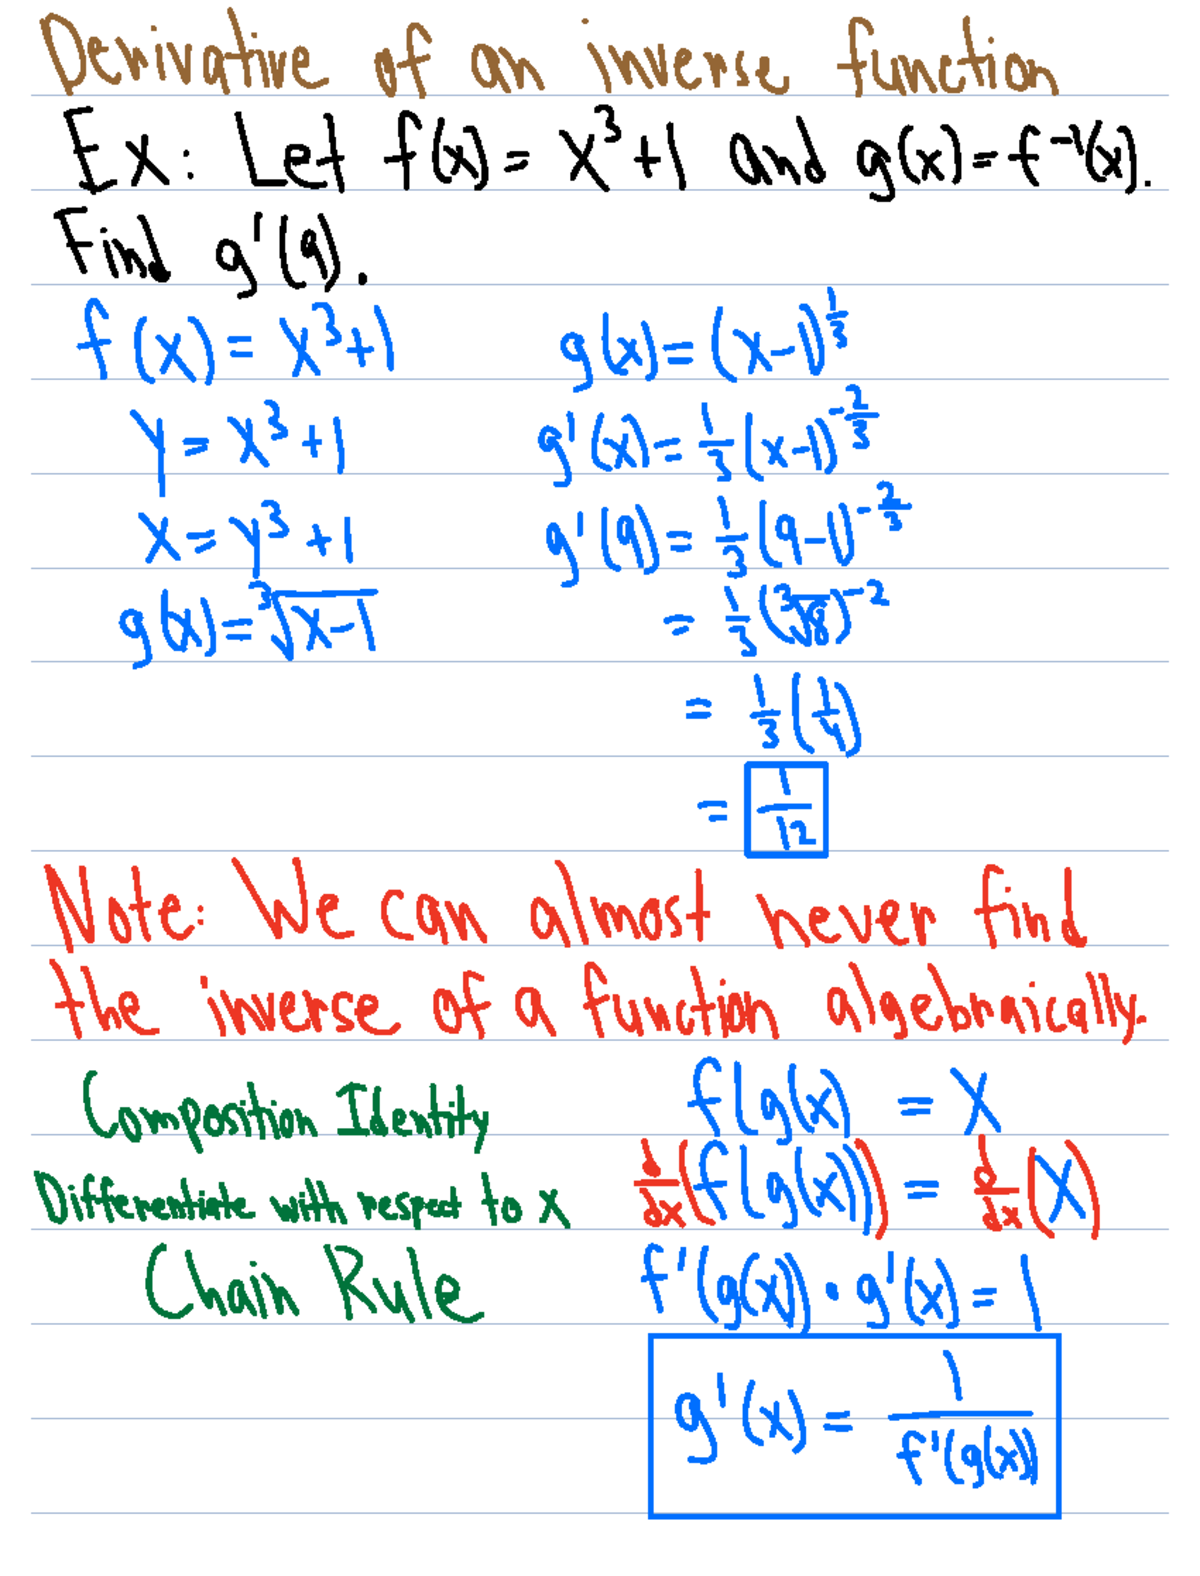 Derivative of an inverse function
Ex: Let f(x) = x³+1 and g(x) = f⁻¹(x).
Find g'(9).
f(x) = x³+1
y = x³+1
x = y³+1
g(x) = ∛(x-1)
g(x) = (x-1)^(1/3)
g'(x) = 1/3 (x-1)^(-2/3)
g'(9) = 1/3 (9-1)^(-2/3)
= 1/3 (∛8)^(-2)
= 1/3 (1/4)
= 1/12
Note: We can almost never find
the inverse of a function algebraically.
Composition Identity f(g(x) = x
Differentiate with respect to x d/dx (f(g(x))) = d/dx (x)
Chain Rule f'(g(x)) · g'(x) = 1
g'(x) = 1/f'(g(x))